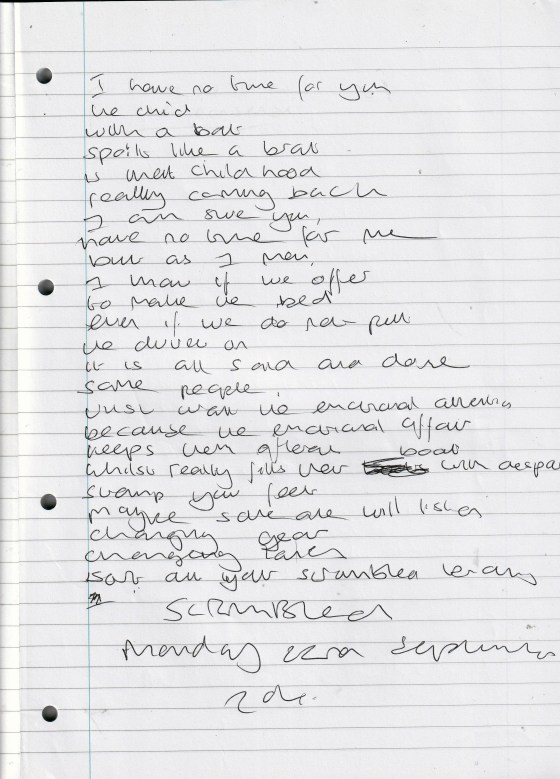 I have no time for you
the child
with a bat
spoilt like a brat
is that childhood
really coming back
I am sure you,
have no time for me
but as I
I know if we offer
to make the bed
even if we do not pull
the duvet on
it is all said and done
some people,
just want the emotional attention
because the emotional affair
keeps them afloat boat
whilst really fills their with despair
stamp your feet
maybe some one will listen
changing gear
changing
sort all your scrambled
SCRAMBLED
Monday 22nd September